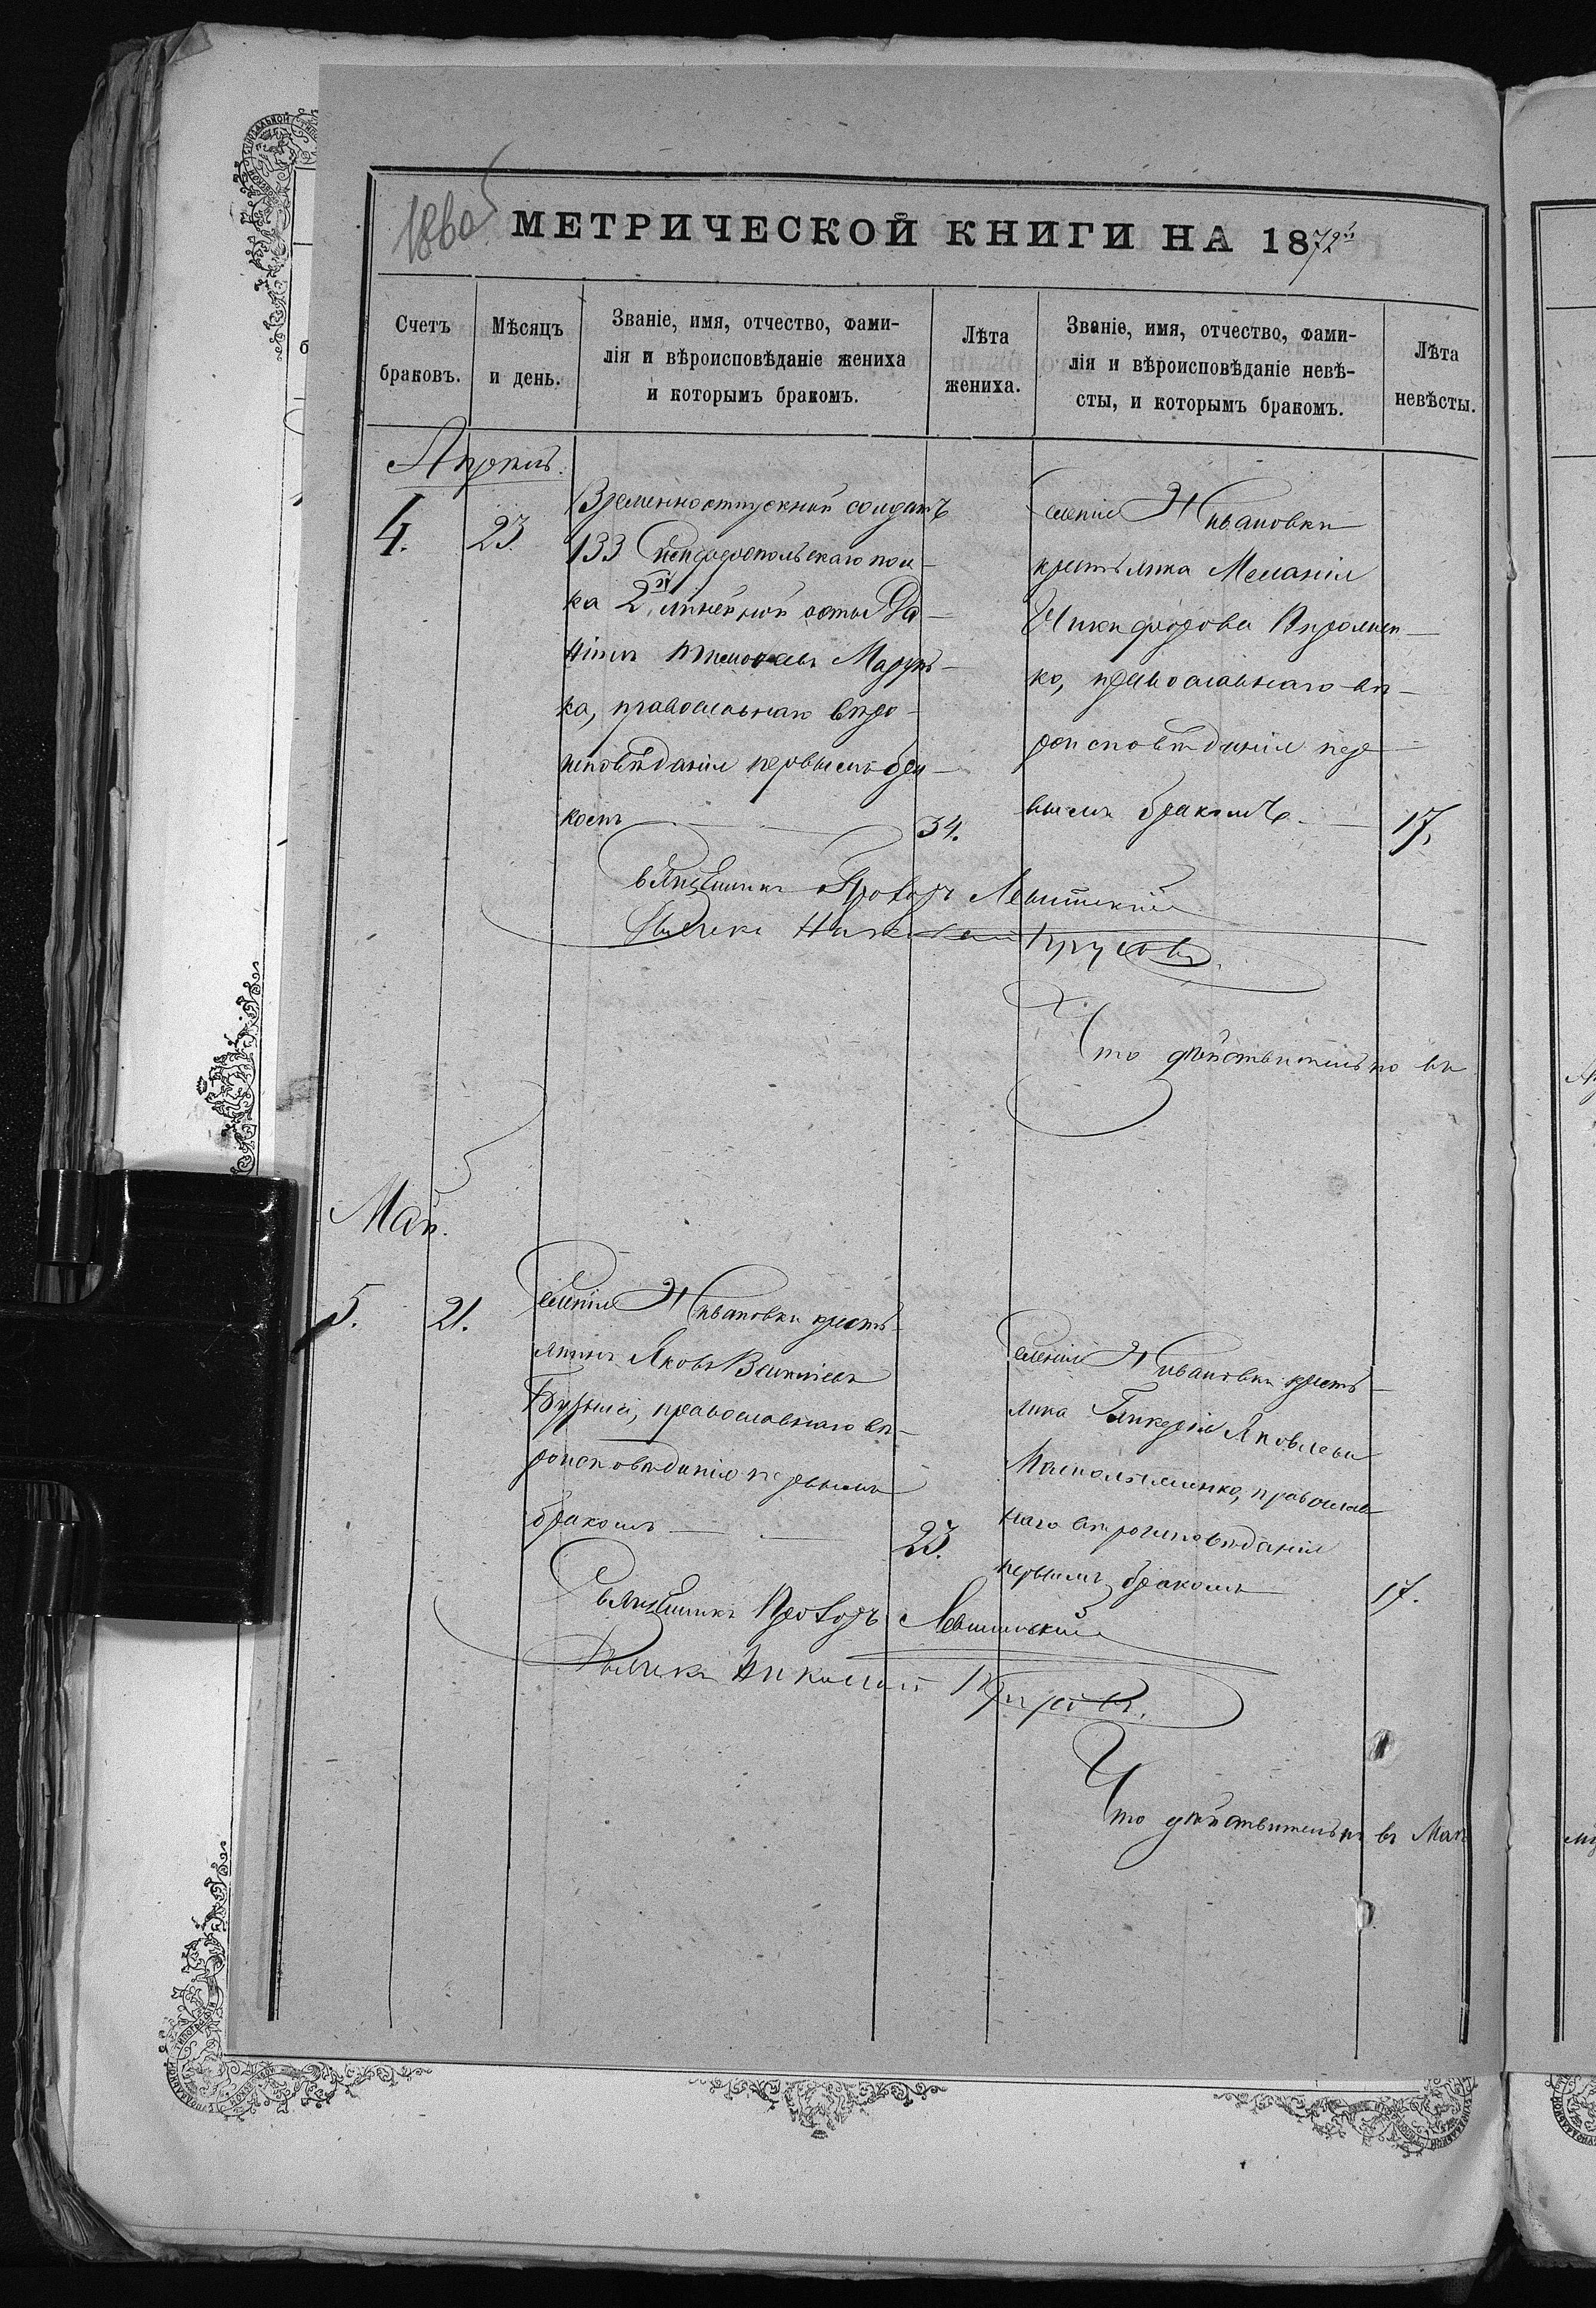 1860
МЕТРИЧЕСКОЙ КНИГИ НА 1872й
Счетъ браковъ.
Мѣсяцъ и день.
Званіе, имя, отчество, фами-
лія и вѣроисповѣданіе жениха
и которымъ бракомъ.
Лѣта жениха.
Званіе, имя, отчество, фами-
лія и вѣроисповѣданіе невѣ-
сты, и которымъ бракомъ.
Лѣта невѣсты.
Апрель.
4.
23.
Временноотпускной солдатъ
133 Симферопольскаго пол-
ка 2й линейной роты Да-
ніилъ Марунь-
ка, православнаго вѣро-
исповѣданія первымъ бра-
комъ
34.
Селенія Ивановки
крестьянка Меланія
Никифорова
ко, православнаго вѣ-
роисповѣданія пер-
вымъ бракомъ.
17.
Священникъ Прохоръ Левитскій
Дьячекъ Николай Крусовъ
Что дѣйствительно въ
Май.
5.
21.
Селенія Ивановки кресть-
янинъ Яковъ Василіевъ
православнаго вѣ-
роисповѣданія первымъ
бракомъ
23.
Селенія Ивановки кресть-
янка Гликерія Яковлева
православ-
наго вѣроисповѣданія
первымъ бракомъ
17.
Священникъ Прохоръ Левитскій
Дьячекъ Николай Крусовъ.
Что дѣйствительно въ Маѣ